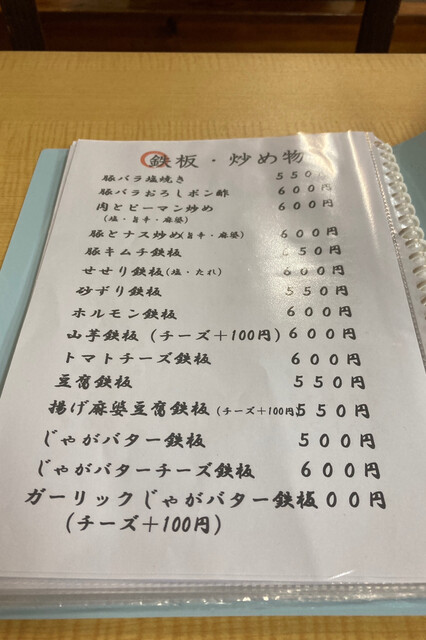 鉄板・炒め物
豚バラ塩焼き 550円
豚バラおろしポン酢 600円
肉とピーマン炒め 600円
(塩・旨辛・麻婆)
豚とナス炒め(旨辛・麻婆) 600円
豚キムチ鉄板 650円
せせり鉄板(塩・たれ) 600円
砂ずり鉄板 550円
ホルモン鉄板 600円
山芋鉄板(チーズ+100円) 600円
トマトチーズ鉄板 600円
豆腐鉄板 550円
揚げ麻婆豆腐鉄板(チーズ+100円) 550円
じゃがバター鉄板 500円
じゃがバターチーズ鉄板 600円
ガーリックじゃがバター鉄板 00円
(チーズ+100円)